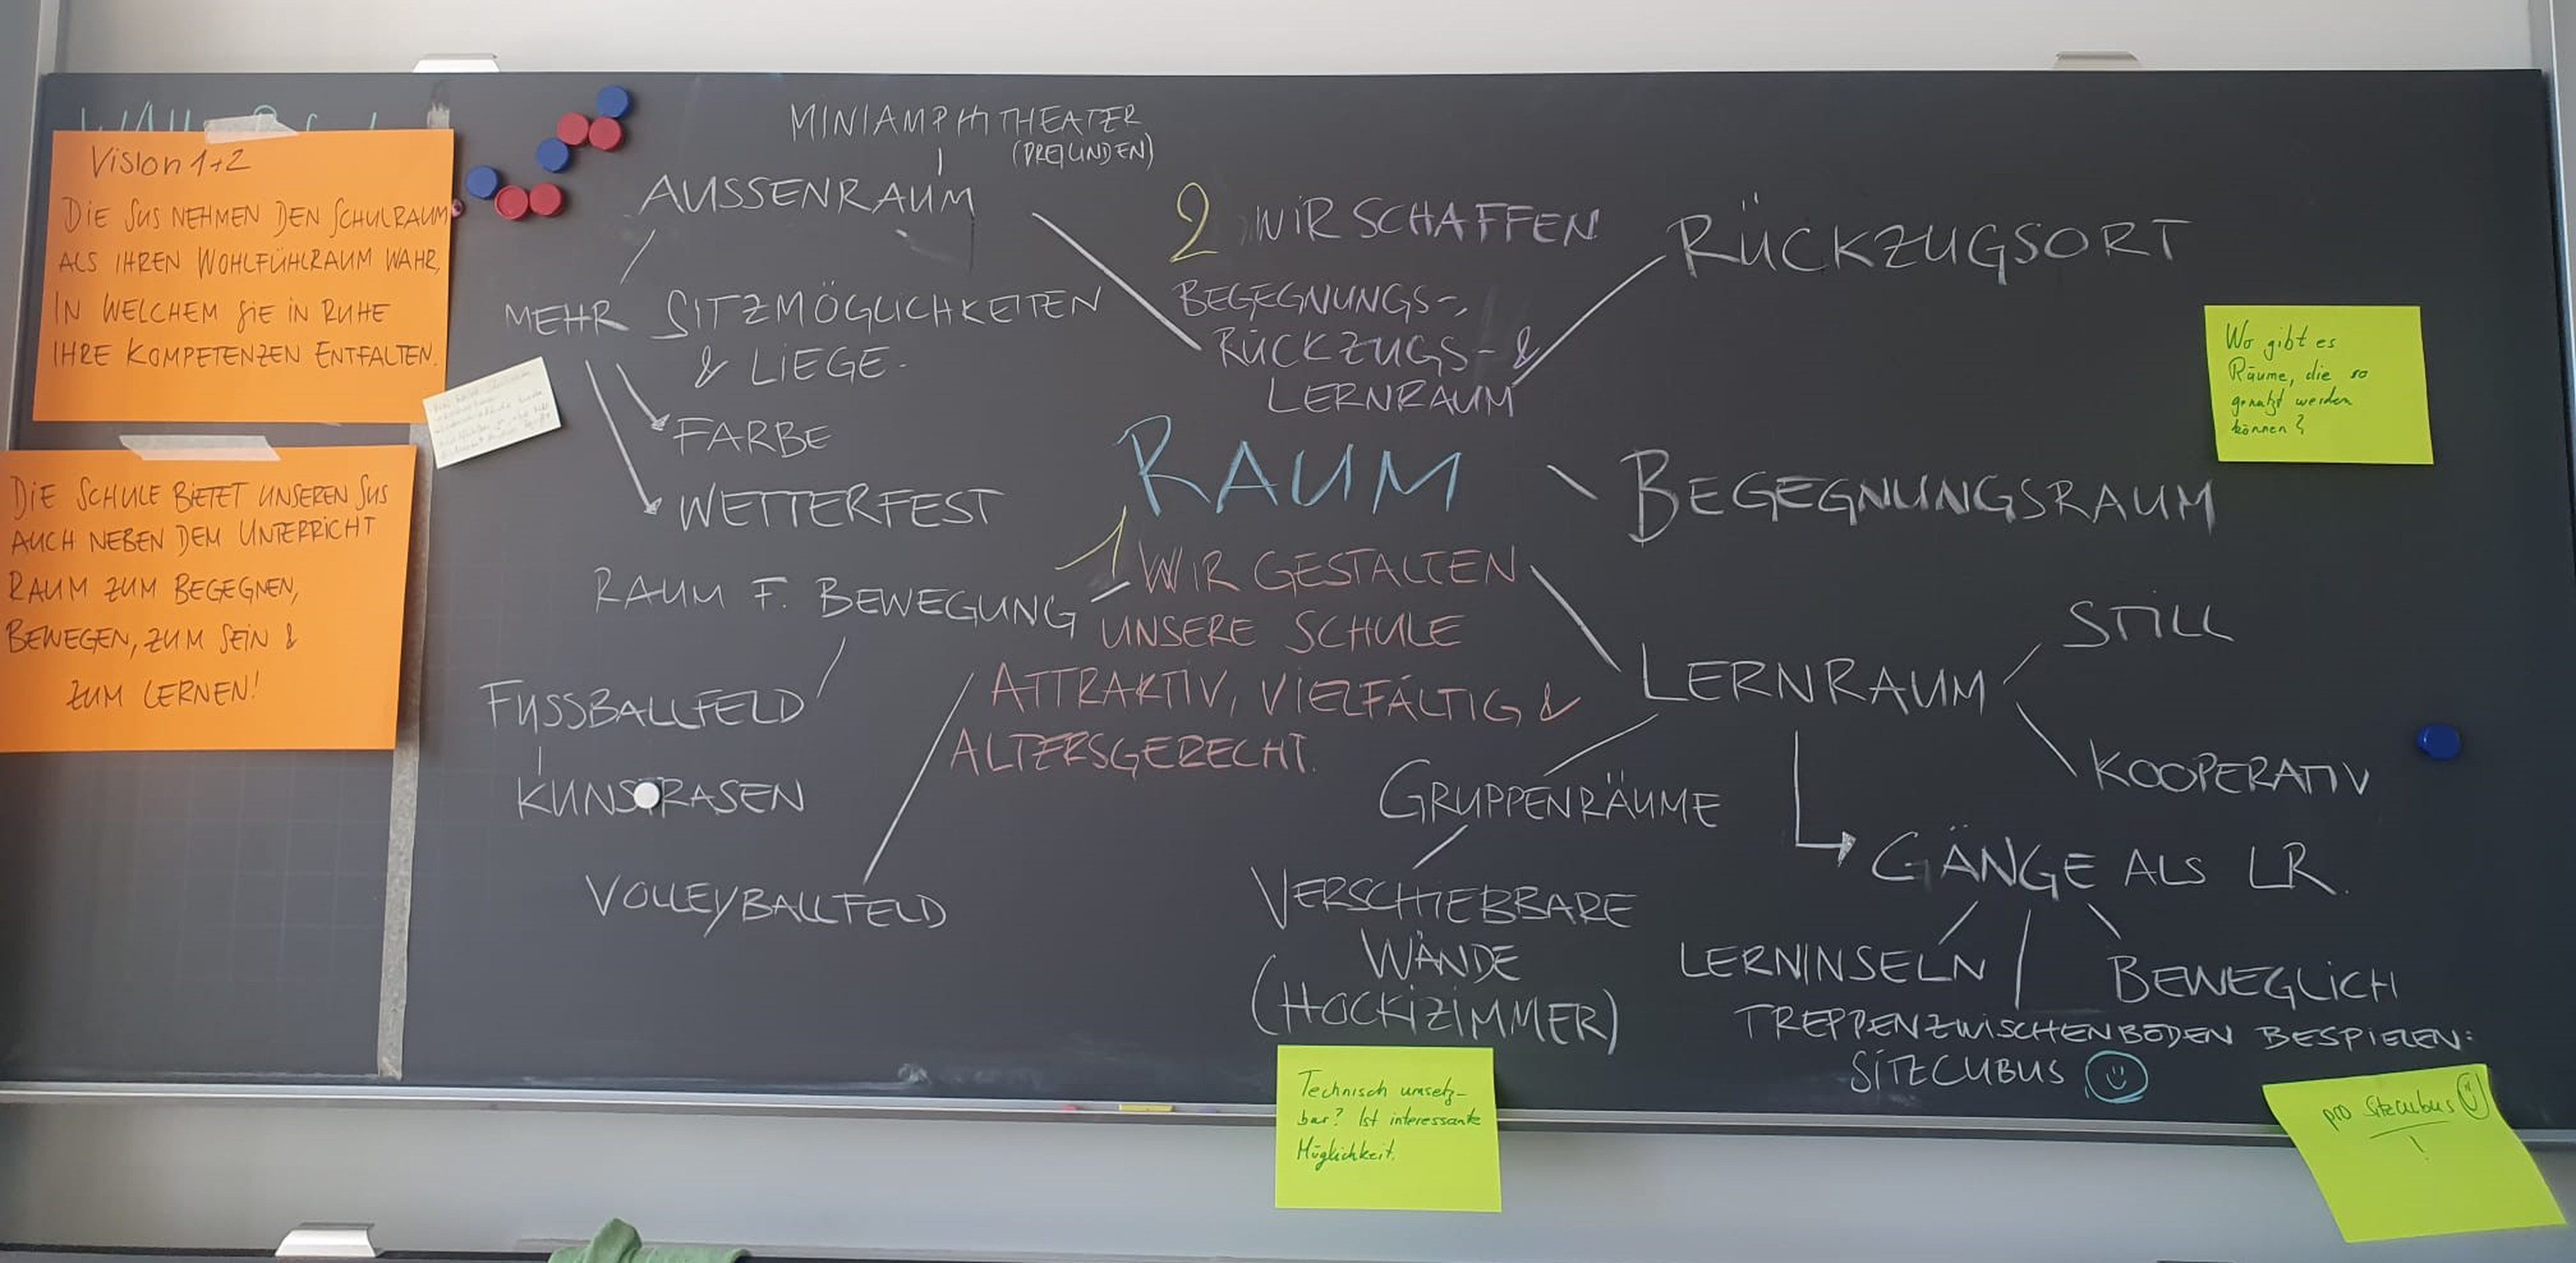 Vision 1+2
DIE SUS NEHMEN DEN SCHULRAUM
ALS IHREN WOHLFÜHLRAUM WAHR,
IN WELCHEM SIE IN RUHE
IHRE KOMPETENZEN ENTFALTEN.
DIE SCHULE BIETET UNSEREN SUS
AUCH NEBEN DEM UNTERRICHT
RAUM ZUM BEGEGNEN,
BEWEGEN, ZUM SEIN &
ZUM LERNEN!
MINIAMPHITHEATER
AUSSENRAUM
MEHR SITZMÖGLICHKEITEN
& LIEGE.
FARBE
WETTERFEST
RAUM F. BEWEGUNG
FUSSBALLFELD
KUNSTRASEN
VOLLEYBALLFELD
2 WIR SCHAFFEN
BEGEGNUNGS-,
RÜCKZUGS- &
LERNRAUM
RAUM
1 WIR GESTALTEN
UNSERE SCHULE
ATTRAKTIV, VIELFÄLTIG &
ALTERSGERECHT.
RÜCKZUGSORT
Wo gibt es
Räume, die so
genutzt werden
können?
BEGEGNUNGSRAUM
LERNRAUM
STILL
KOOPERATIV
GRUPPENRÄUME
VERSCHIEBBARE
WÄNDE
(HOCKIZIMMER)
Technisch umsetz-
bar? Ist interessante
Möglichkeit.
GÄNGE ALS LR.
LERNINSELN
BEWEGLICH
TREPPENZWISCHENBÖDEN BESPIELEN:
SITZCUBUS
pro Sitzcubus
!